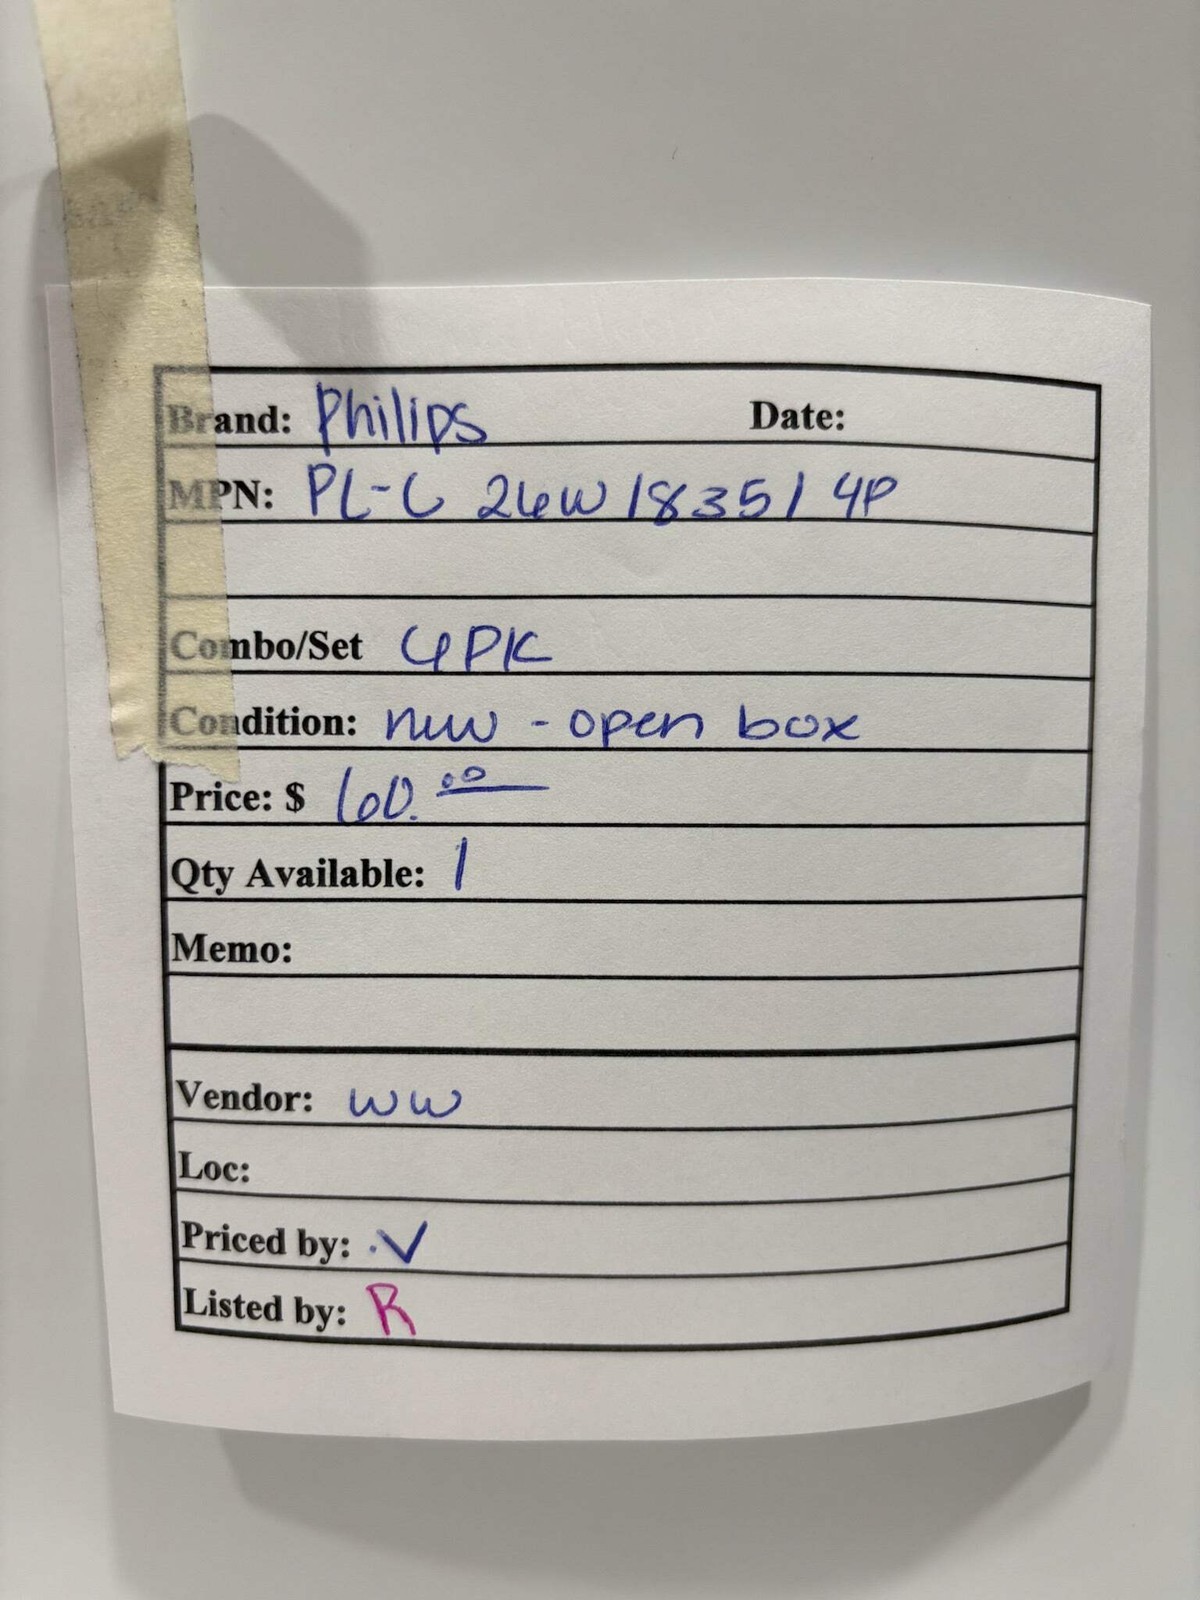 Brand: Philips Date:
MPN: PL-C 26W/835/4P
Combo/Set
Condition: new - open box
Price: $ 60.00
Qty Available: 1
Memo:
Vendor: WW
Loc:
Priced by: .V
Listed by: R